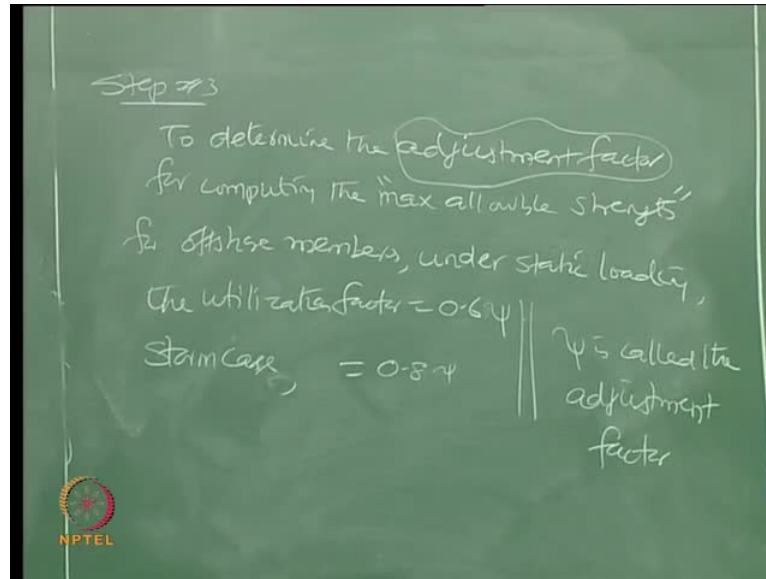 Step #3
To determine the adjustment factor
for computing the "max allowable strength"
for offshore members, under static loading,
the utilization factor = 0.6 ψ
Storm case, = 0.8 ψ
ψ is called the
adjustment
factor
NPTEL